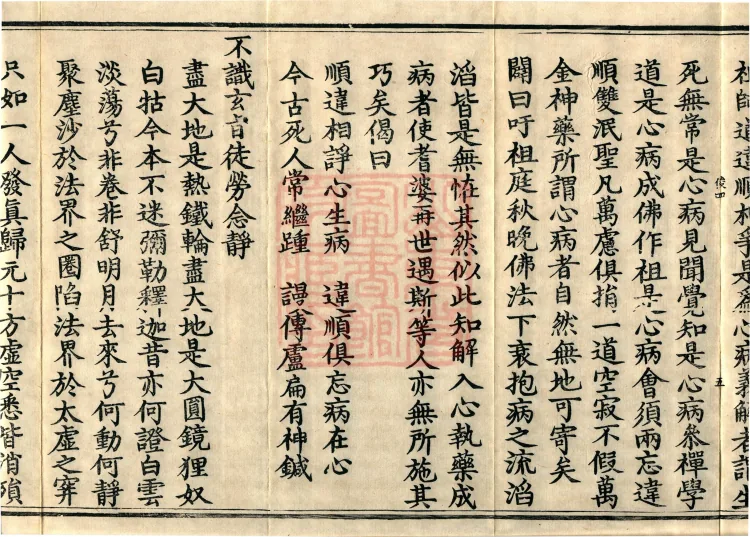 祖師道違順相爭是爲心病義解者謂生
俊四
五
死無常是心病見聞覺知是心病叅禪學
道是心病成佛作祖是心病會須兩忘違
順雙泯聖凡萬慮俱捐一道空寂不假萬
金神藥所謂心病者自然無地可寄矣
闢曰吁祖庭秋晚佛法下衰抱病之流滔
滔皆是無恠其然似此知解入心執藥成
病者使耆婆再世遇斯等人亦無所施其
巧矣偈曰
順違相諍心生病 違順俱忘病在心
今古死人常繼踵 謾傳盧扁有神鍼
不識玄旨徒勞念靜
盡大地是熱鐵輪盡大地是大圓鏡狸奴
白牯今本不迷彌勒釋迦昔亦何證白雲
淡蕩兮非卷非舒明月去來兮何動何靜
聚塵沙於法界之圈陷法界於太虛之穽
只如一人發眞歸元十方虛空悉皆消殞